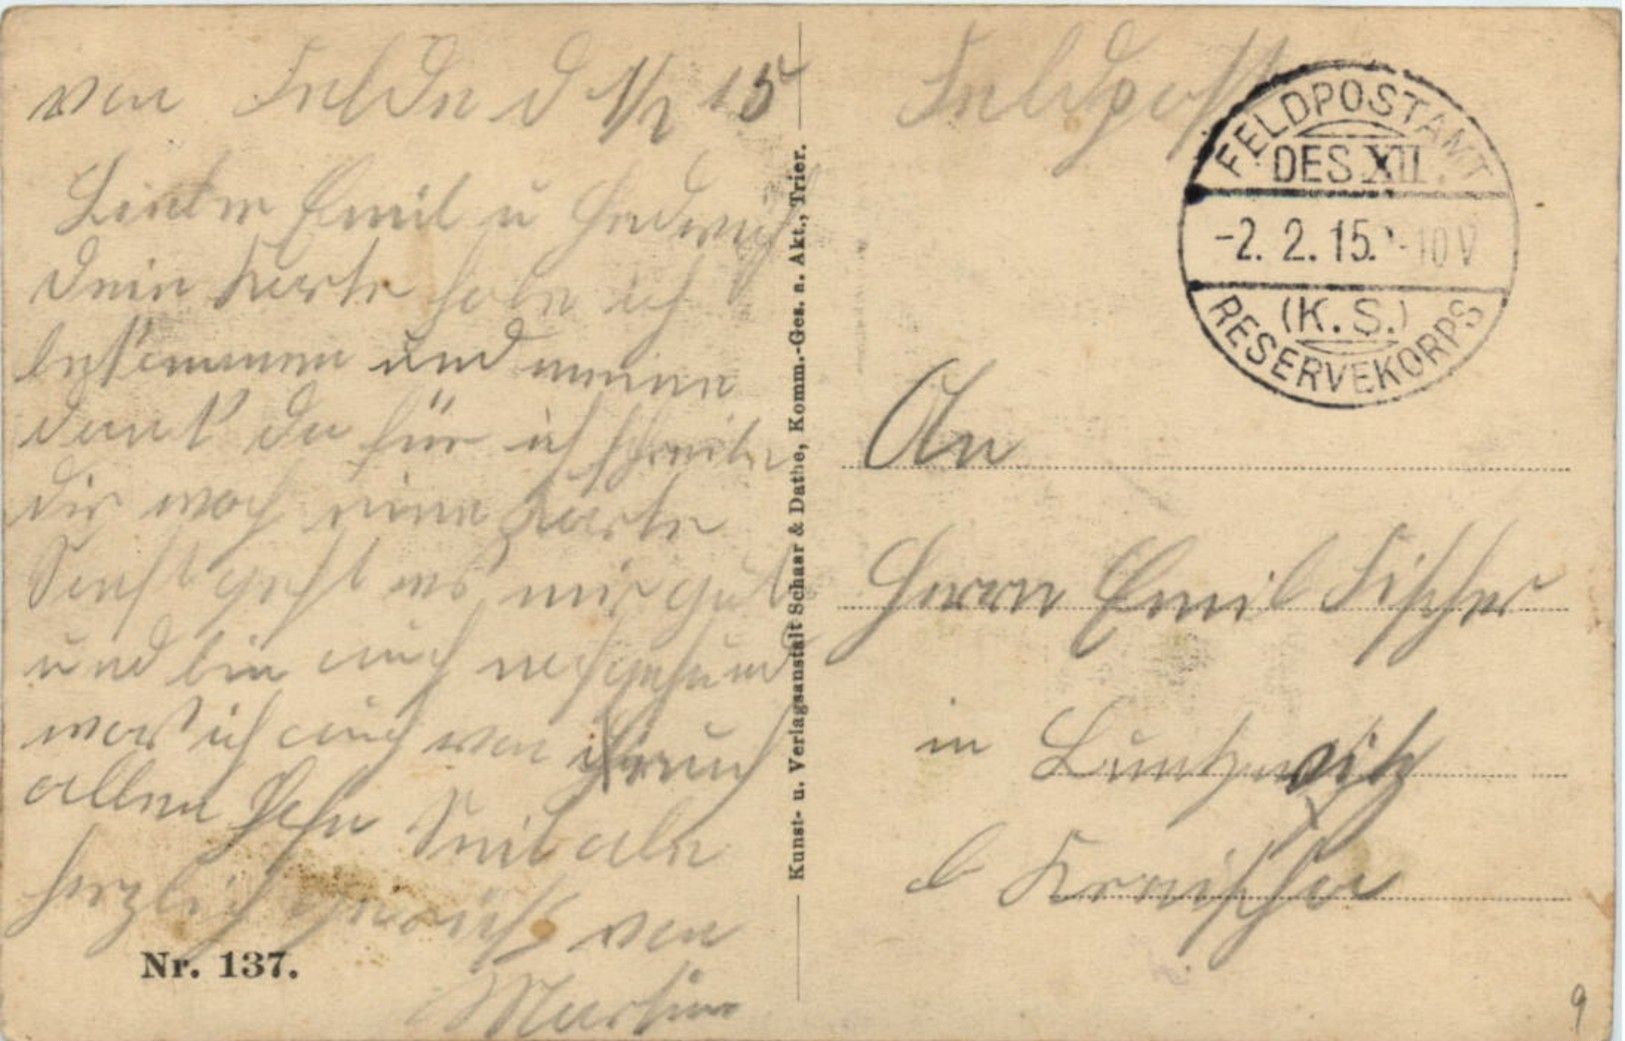 von Felde d 1/2 15
Lieber Emil u Hedwig
Deine Karte habe ich
bekommen und meinen
dank da für ich schreibe
dir noch eine Karte
Sonst geht es mir gut
und bin auch gesund
was ich auch von euch
allen
herzlich gegrüßt von
Martin
Nr. 137.
Kunst- u. Verlagsanstalt Schaar & Dathe, Komm.-Ges. a. Akt., Trier.
Feldpost
FELDPOSTAMT
DES XII.
-2. 2. 15. -10 V
(K. S.)
RESERVEKORPS
An
Herrn Emil Fischer
in
b Kreischa
9